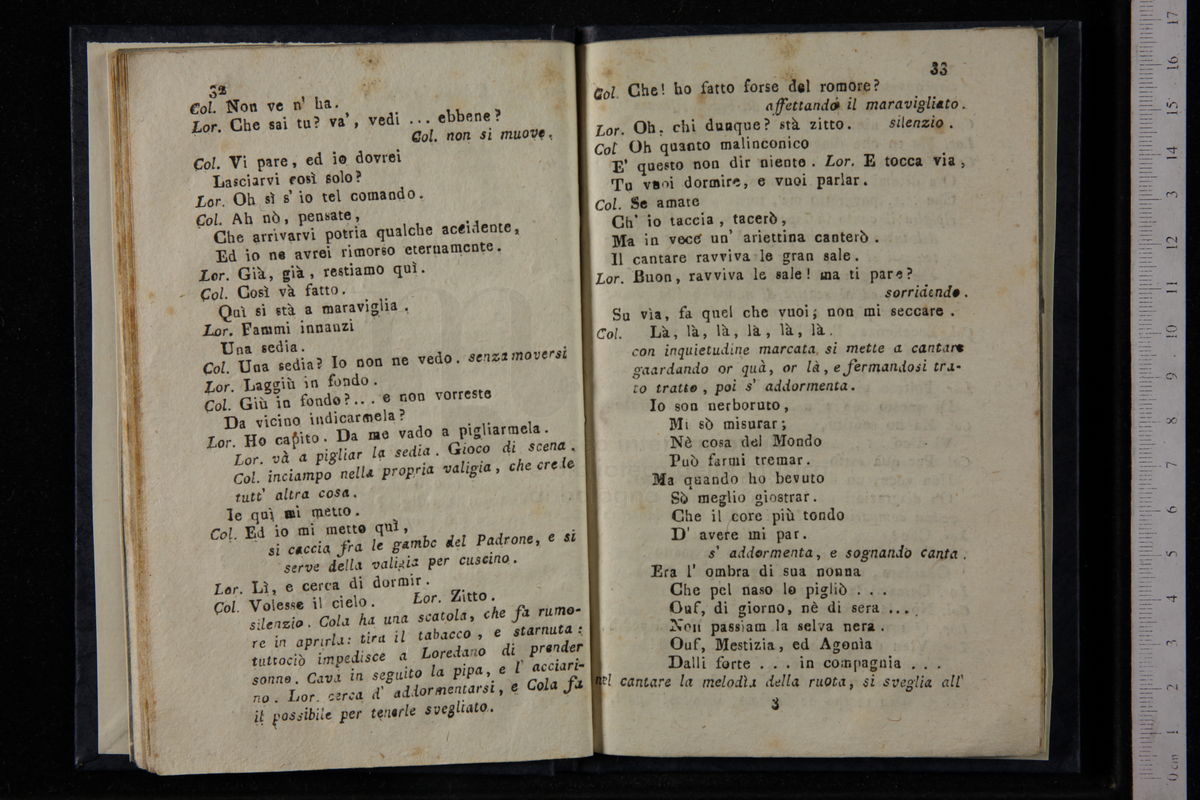 32
Col. Non ve n' ha.
Lor. Che sai tu? va', vedi ... ebbene?
Col. non si muove.
Col. Vi pare, ed io dovrei
Lasciarvi così solo?
Lor. Oh sì s' io tel comando.
Col. Ah nò, pensate,
Che arrivarvi potria qualche accidente,
Ed io ne avrei rimorso eternamente.
Lor. Già, già, restiamo quì.
Col. Così và fatto.
Quì si stà a maraviglia.
Lor. Fammi innanzi
Una sedia.
Col. Una sedia? Io non ne vedo. senza moversi
Lor. Laggiù in fondo.
Col. Giù in fondo?... e non vorreste
Da vicino indicarmela?
Lor. Ho capito. Da me vado a pigliarmela.
Lor. và a pigliar la sedia. Gioco di scena.
Col. inciampo nella propria valigia, che crede
tutt' altra cosa.
Ie quì mi metto.
Col. Ed io mi metto quì,
si caccia fra le gambe del Padrone, e si
serve della valigia per cuscino.
Lor. Lì, e cerca di dormir.
Col. Volesse il cielo. Lor. Zitto.
silenzio. Cola ha una scatola, che fa rumo-
re in aprirla: tira il tabacco, e starnuta:
tuttociò impedisce a Loredano di prender
sonno. Cava in seguito la pipa, e l' acciari-
no. Lor. cerca d' addormentarsi, e Cola fa
il possibile per tenerle svegliato.
33
Col. Che! ho fatto forse del romore?
affettando il maravigliato.
Lor. Oh, chi dunque? stà zitto. silenzio.
Col Oh quanto malinconico
E' questo non dir niente. Lor. E tocca via,
Tu vuoi dormire, e vuoi parlar.
Col. Se amate
Ch' io taccia, tacerò,
Ma in vece un' ariettina canterò.
Il cantare ravviva le gran sale.
Lor. Buon, ravviva le sale! ma ti pare?
sorridendo.
Su via, fa quel che vuoi; non mi seccare.
Col. Là, là, là, là, là, là.
con inquietudine marcata si mette a cantare
gaardando or quà, or là, e fermandosi tra-
to tratto, poi s' addormenta.
Io son nerboruto,
Mi sò misurar;
Nè cosa del Mondo
Può farmi tremar.
Ma quando ho bevuto
Sò meglio giostrar.
Che il core più tondo
D' avere mi par.
s' addormenta, e sognando canta.
Era l' ombra di sua nonna
Che pel naso lo pigliò ...
Ouf, di giorno, nè di sera ...
Non passiam la selva nera.
Ouf, Mestizia, ed Agonìa
Dalli forte ... in compagnia ...
nel cantare la melodìa della ruota, si sveglia all'
3